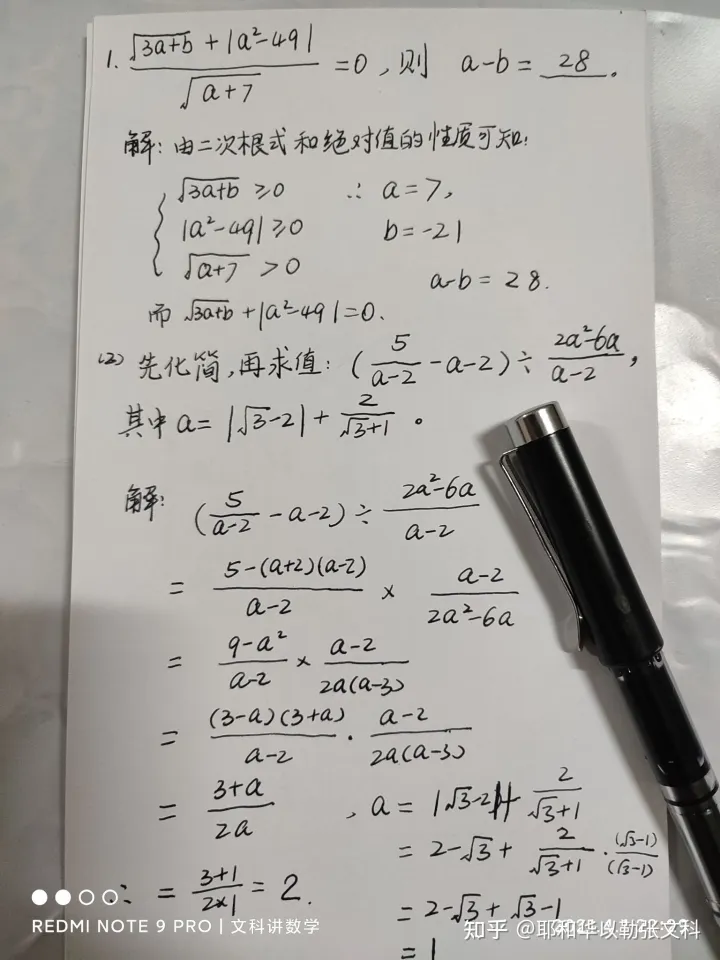 1. (√(3a+b) + |a²-49|)/√(a+7) = 0, 则 a-b = 28.
解: 由二次根式和绝对值的性质可知:
√(3a+b) ≥0 ∴ a=7,
|a²-49| ≥0 b=-21
√(a+7) >0 a-b = 28.
而 √(3a+b) + |a²-49| = 0.
(2) 先化简, 再求值: (5/(a-2) - a-2) ÷ (2a²-6a)/(a-2),
其中 a = |√3-2| + 2/(√3+1) 。
解: (5/(a-2) - a-2) ÷ (2a²-6a)/(a-2)
= (5-(a+2)(a-2))/(a-2) × (a-2)/(2a²-6a)
= (9-a²)/(a-2) × (a-2)/(2a(a-3))
= ((3-a)(3+a))/(a-2) · (a-2)/(2a(a-3))
= (3+a)/(2a) , a = |√3-2|+ 2/(√3+1)
= 2-√3 + 2/(√3+1) · (√3-1)/(√3-1)
∴ = (3+1)/(2×1) = 2.
= 2-√3 + √3-1
= 1
REDMI NOTE 9 PRO | 文科讲数学
知乎 @耶和华以勒张文科